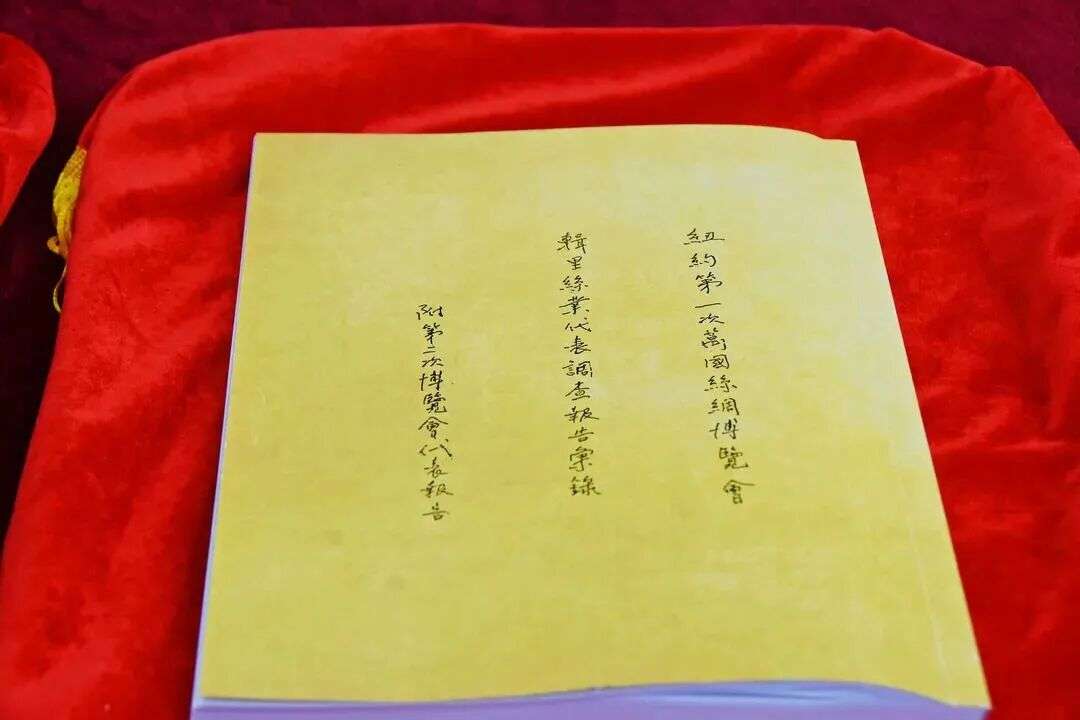 紐約第一次萬國絲綢博覽會
輯里絲業代表調查報告彙錄
附第二次博覽會代表報告